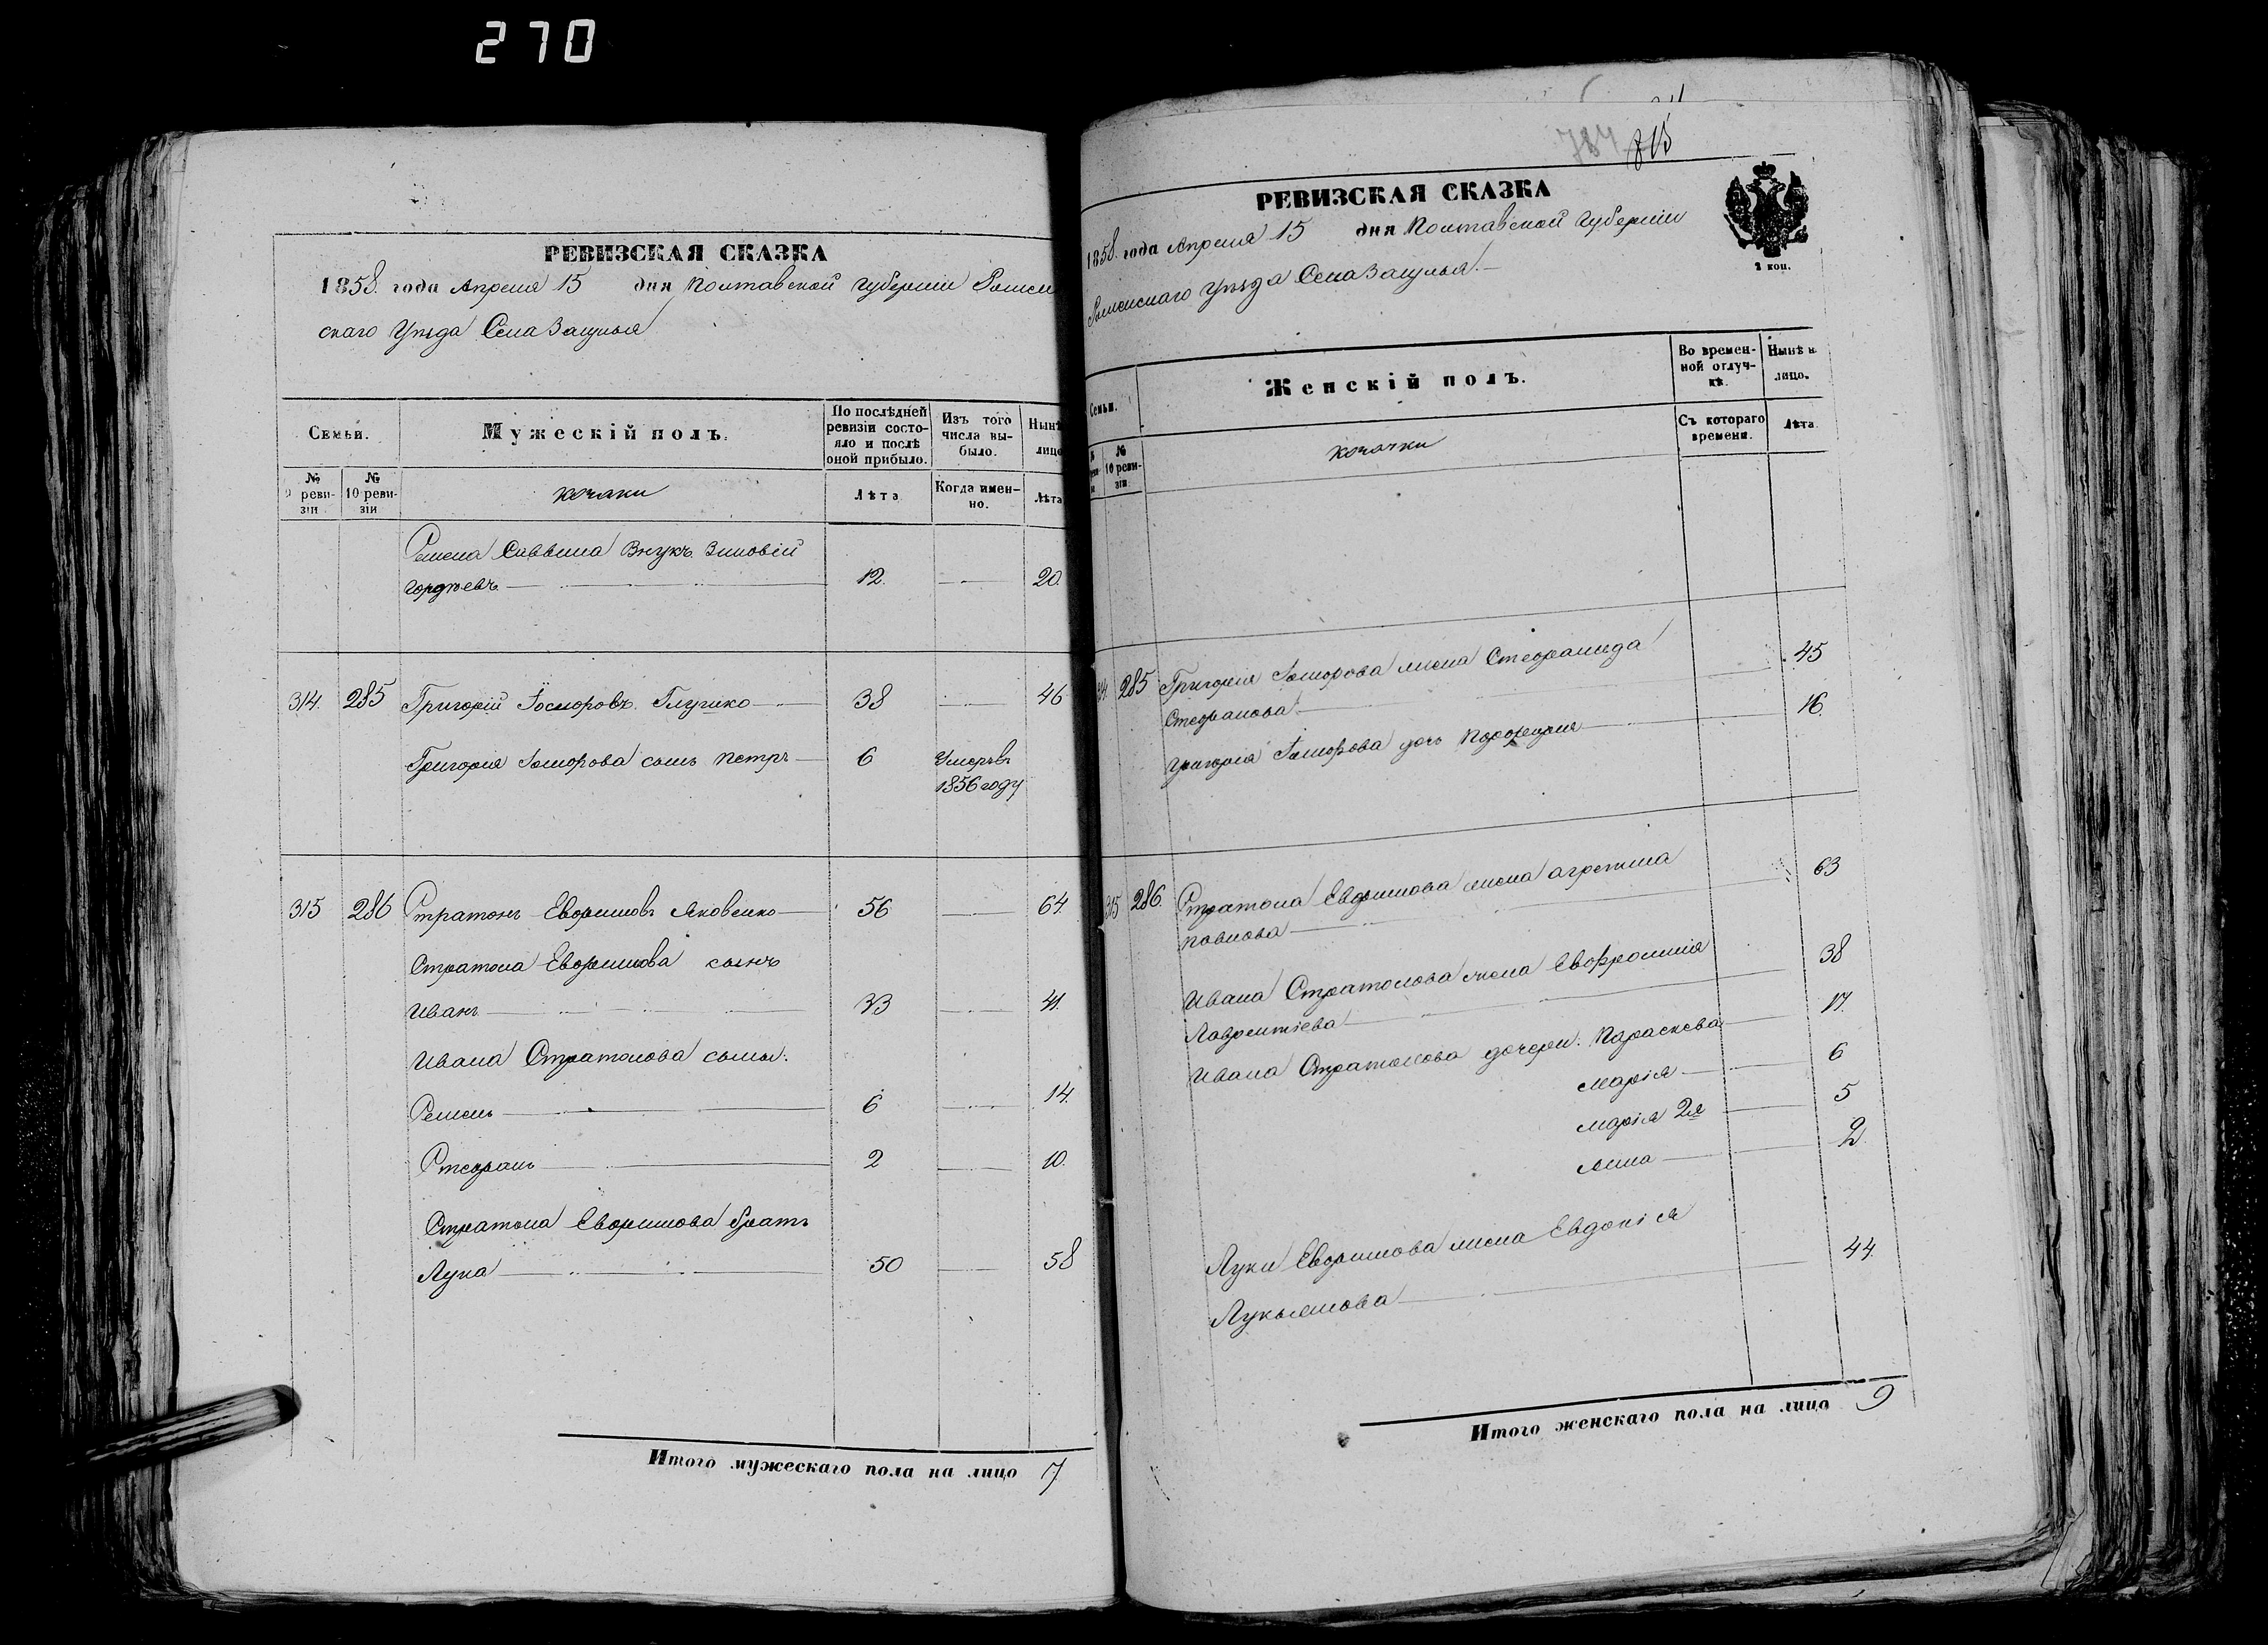 270
РЕВИЗСКАЯ СКАЗКА
1858. года Апреля 15 дня Полтавской Губерніи Ромен
скаго Уѣзда Села
Семьи.
Мужескій полъ.
По послѣдней ревизіи состояло и послѣ оной прибыло.
Изъ того числа выбыло.
Нынѣ
лицо
№ 9 ревизіи
№ 10 ревизіи
козаки
Лѣта
Когда именно.
Лѣта
Семена Саввина Внукъ Зиновій
Гордѣевъ 12. 20.
314. 285 Григорій Глушко 38 46
Григорія сынъ Петръ 6 Умеръ въ
1856 году
315 286 Стратонъ Евфимовъ Яковенко 56 64.
Стратона Евфимова сынъ
Иванъ 33 41.
Ивана Стратонова сыны:
Семенъ 6 14.
Стефанъ 2 10.
Стратона Евфимова братъ
Лука 50 58
Итого мужескаго пола на лицо 7
784 815
РЕВИЗСКАЯ СКАЗКА
1858. года Апреля 15 дня Полтавской Губерніи
Роменскаго Уѣзда Села
2 коп.
Семьи.
Женскій полъ.
Во временной отлучкѣ.
Нынѣ н.
лицо.
№ 10 ревизіи
козачки
Съ котораго времени.
Лѣта.
285 Григорія жена Стефанида
Стефанова 45
Григорія дочь 16.
315 286. Стратона Евфимова жена Агрепина
Павлова 63
Ивана Стратонова жена Евфросинія
Лаврентіева 38
Ивана Стратонова дочери: Параскева 17.
Марія 6
Марія 2я 5
Анна 2.
Луки Евфимова жена Евдокія
Лукьянова 44.
Итого женскаго пола на лицо 9